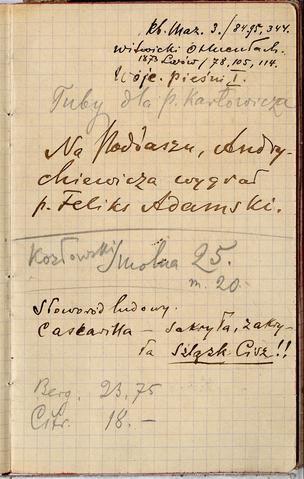 kb. Maz. 3. / 84.95, 344.
witwicki o Huculach.
1873 Lwów / 78, 105, 114.
Wójc. pieśni I.
Tuby dla p. Karłowicza
Na Podlaszu, Andry-
chiewicza wygrał
p. Feliks Adamski.
Kozłowski Smolna 25.
m. 20.
Słoworód ludowy.
Cascarilla — sakryła, zakry-
ła Szlązk. Cisz!!
Berg. 23,75
Citr. 18.—